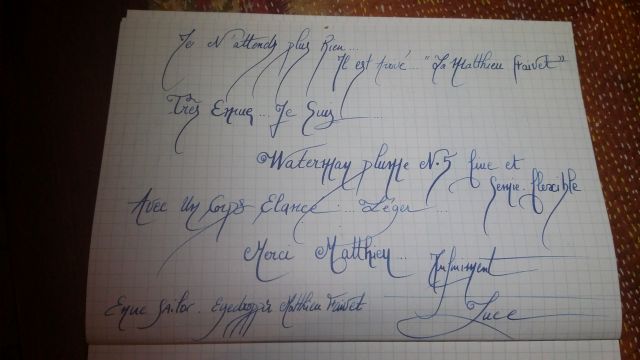 Je N'attends plus Rien...
Il est trouvé... "Le Matthieu Faivet"
Très Emue... Je Suis
Waterman plume N.5 fine et
semie-flexcible
Avec un Corps Elancé... Léger...
Merci Matthieu... Infiniment
Luce
Encre Sailor. Eyedropper Matthieu Faivet